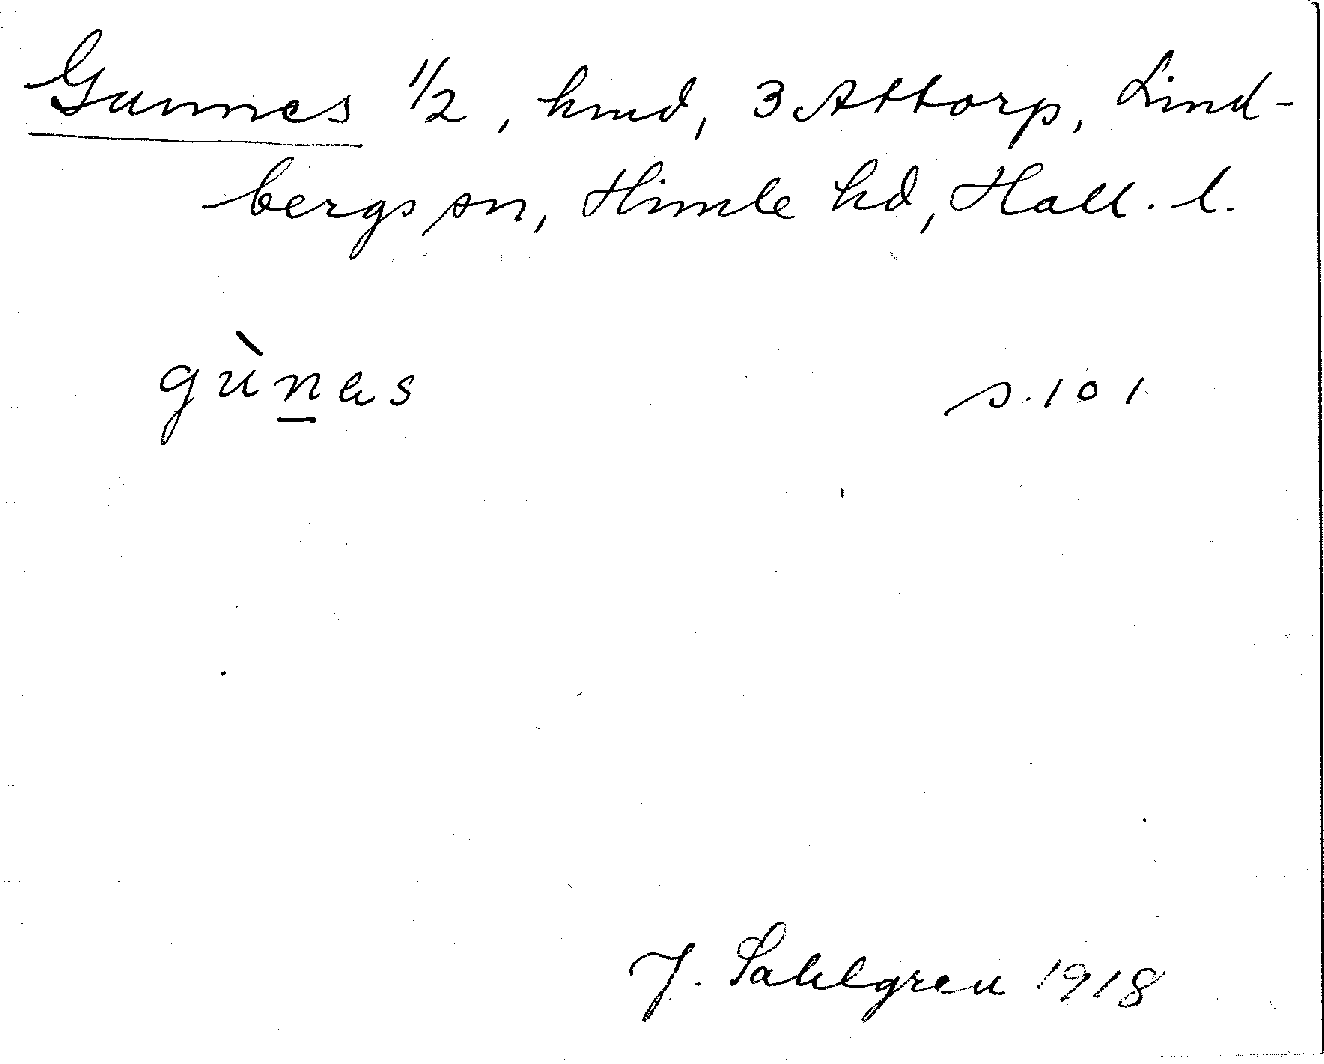 Gunnes 1/2, hmd, 3 Attorp, Lind-
bergs sn, Himle hd, Hall. l.
gùn̲as s. 101
J. Sahlgren 1918